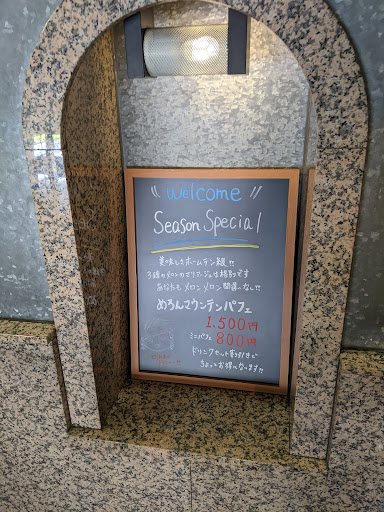 "Welcome"
Season Special
美味しさホームラン級!!
3種のメロンのマリアージュは格別です
あなたも メロンメロン間違いなし!!
めろんマウンテンパフェ
1,500円
ミニパフェ 800円
ドリンクセット割引きで
ちょっとお得になります!!